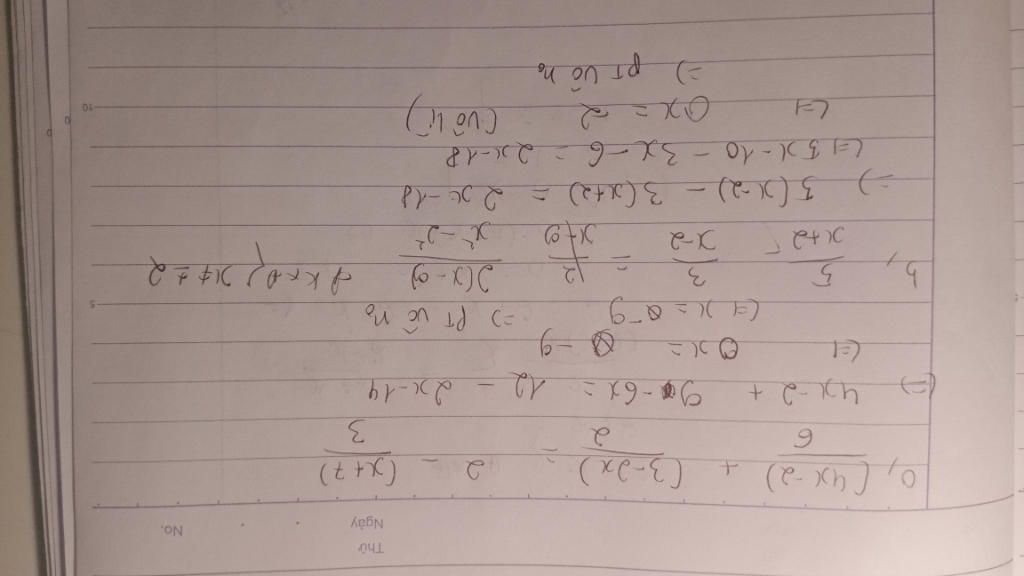 Thứ
Ngày
No.
a, (4x-2)/6 + (3-2x)/2 = 2 - (x+7)/3
(=) 4x-2 + 9-6x = 12 - 2x-14
(=) 0x = -9
(=) x = -9 => PT vô no
b, 5/(x+2) - 3/(x-2) = 2(x-9)/(x²-2²) ĐKXĐ x ≠ ±2
=) 5(x-2) - 3(x+2) = 2x-18
(=) 5x-10 - 3x-6 = 2x-18
(=) 0x = -2 (vô lí)
=) PT vô no
5
10